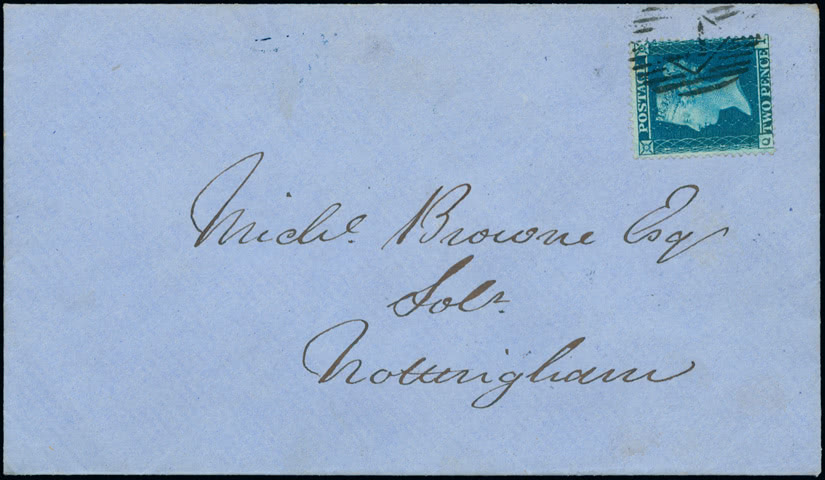 POSTAGE
TWO PENCE
Michl. Browne Esq
Solr.
Nottingham